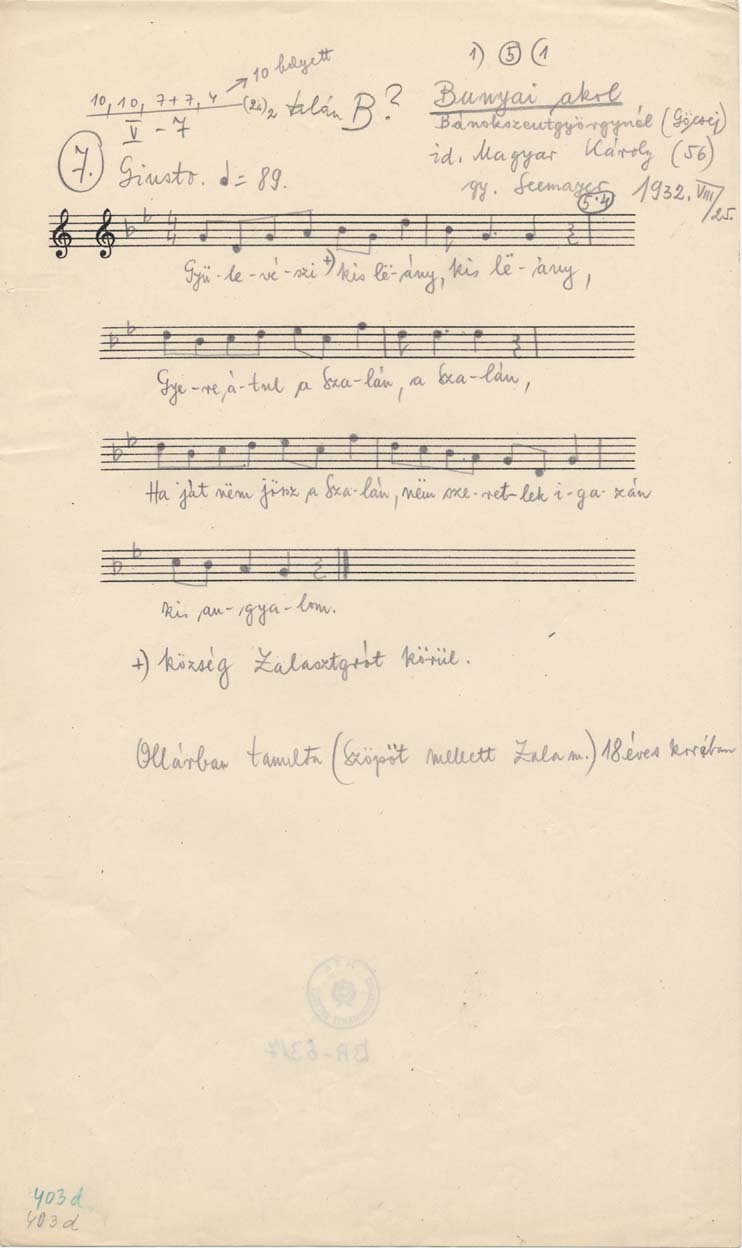 10 helyett
1) 5 (1
10, 10, 7+7, 4 (24)2 talán B?
V - 7
Bunyai akol
Bánokszentgyörgynél (Göcsej)
id. Magyar Károly (56)
gy. Seemayer 1932. VIII/25.
7. Giusto. ♩= 89.
5·4
4
4
Gyü-le-vé-szi +) kis lë-ány, kis lë-ány,
Gye-re á-tul a Sza-lán, a Sza-lán,
Ha ját nëm jösz a Sza-lán, nëm sze-ret-lek i-ga-zán
kis an-gya-lom.
+) község Zalasztgrót körül.
Ollárban tanulta (Szöpöt mellett Zala m.) 18 éves korában
BR-6317
403d
403d